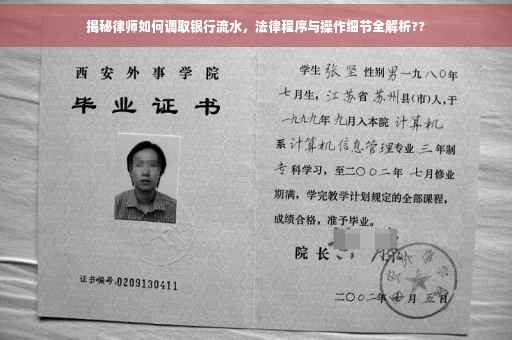 揭秘律师如何调取银行流水，法律程序与操作细节全解析??
西安外事学院
毕业证书
证书编号:0209130411
学生张坚性别男一九八〇年
七月生，江苏省苏州县(市)人,于
一九九九年九月入本院计算机
系计算机信息管理专业三年制
专科学习，至二〇〇二年七月修业
期满，学完教学计划规定的全部课程，
成绩合格，准予毕业。
院长
二〇〇二年七月五日